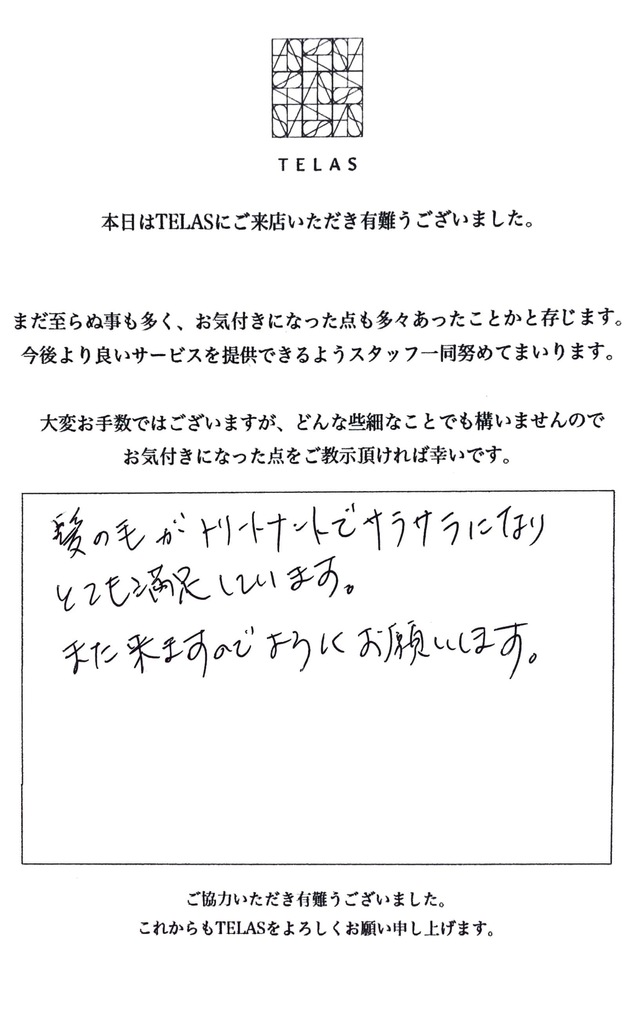 TELAS
本日はTELASにご来店いただき有難うございました。
まだ至らぬ事も多く、お気付きになった点も多々あったことかと存じます。
今後より良いサービスを提供できるようスタッフ一同努めてまいります。
大変お手数ではございますが、どんな些細なことでも構いませんので
お気付きになった点をご教示頂ければ幸いです。
髪の毛がトリートナントでサラサラになり
とても満足しています。
また来ますのでよろしくお願いします。
ご協力いただき有難うございました。
これからもTELASをよろしくお願い申し上げます。